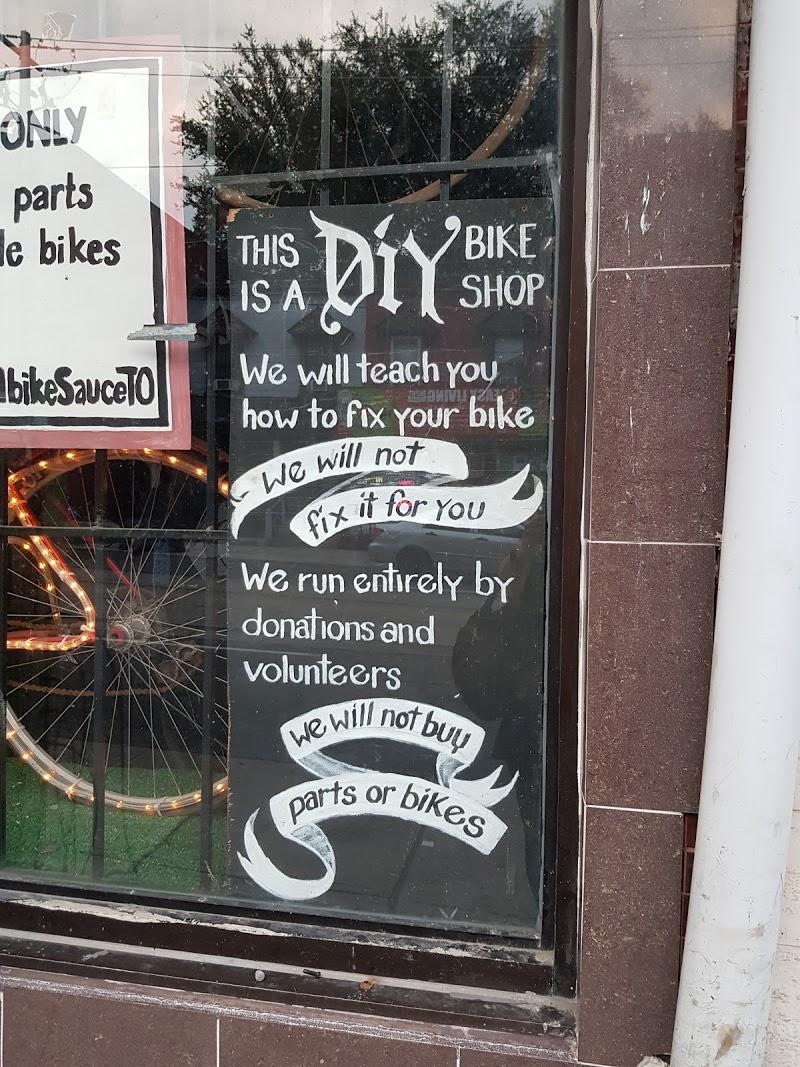 ONLY
parts
bikes
bikeSauceTO
THIS IS A DiY BIKE SHOP
We will teach you
how to fix your bike
We will not
fix it for you
We run entirely by
donations and
volunteers
we will not buy
parts or bikes